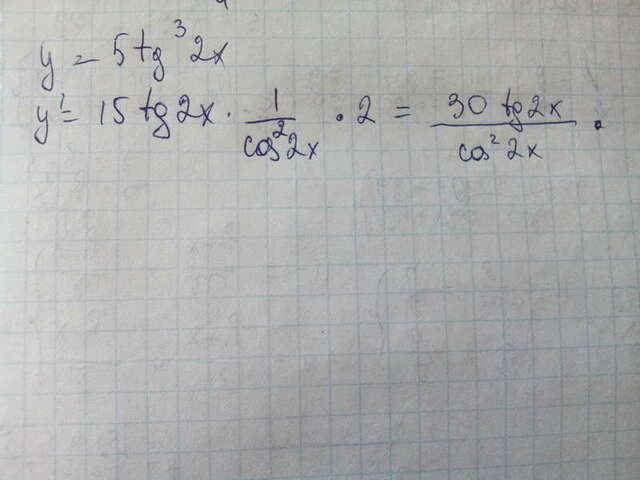 y = 5 tg³ 2x
y' = 15 tg 2x · 1/cos² 2x · 2 = 30 tg 2x / cos² 2x .